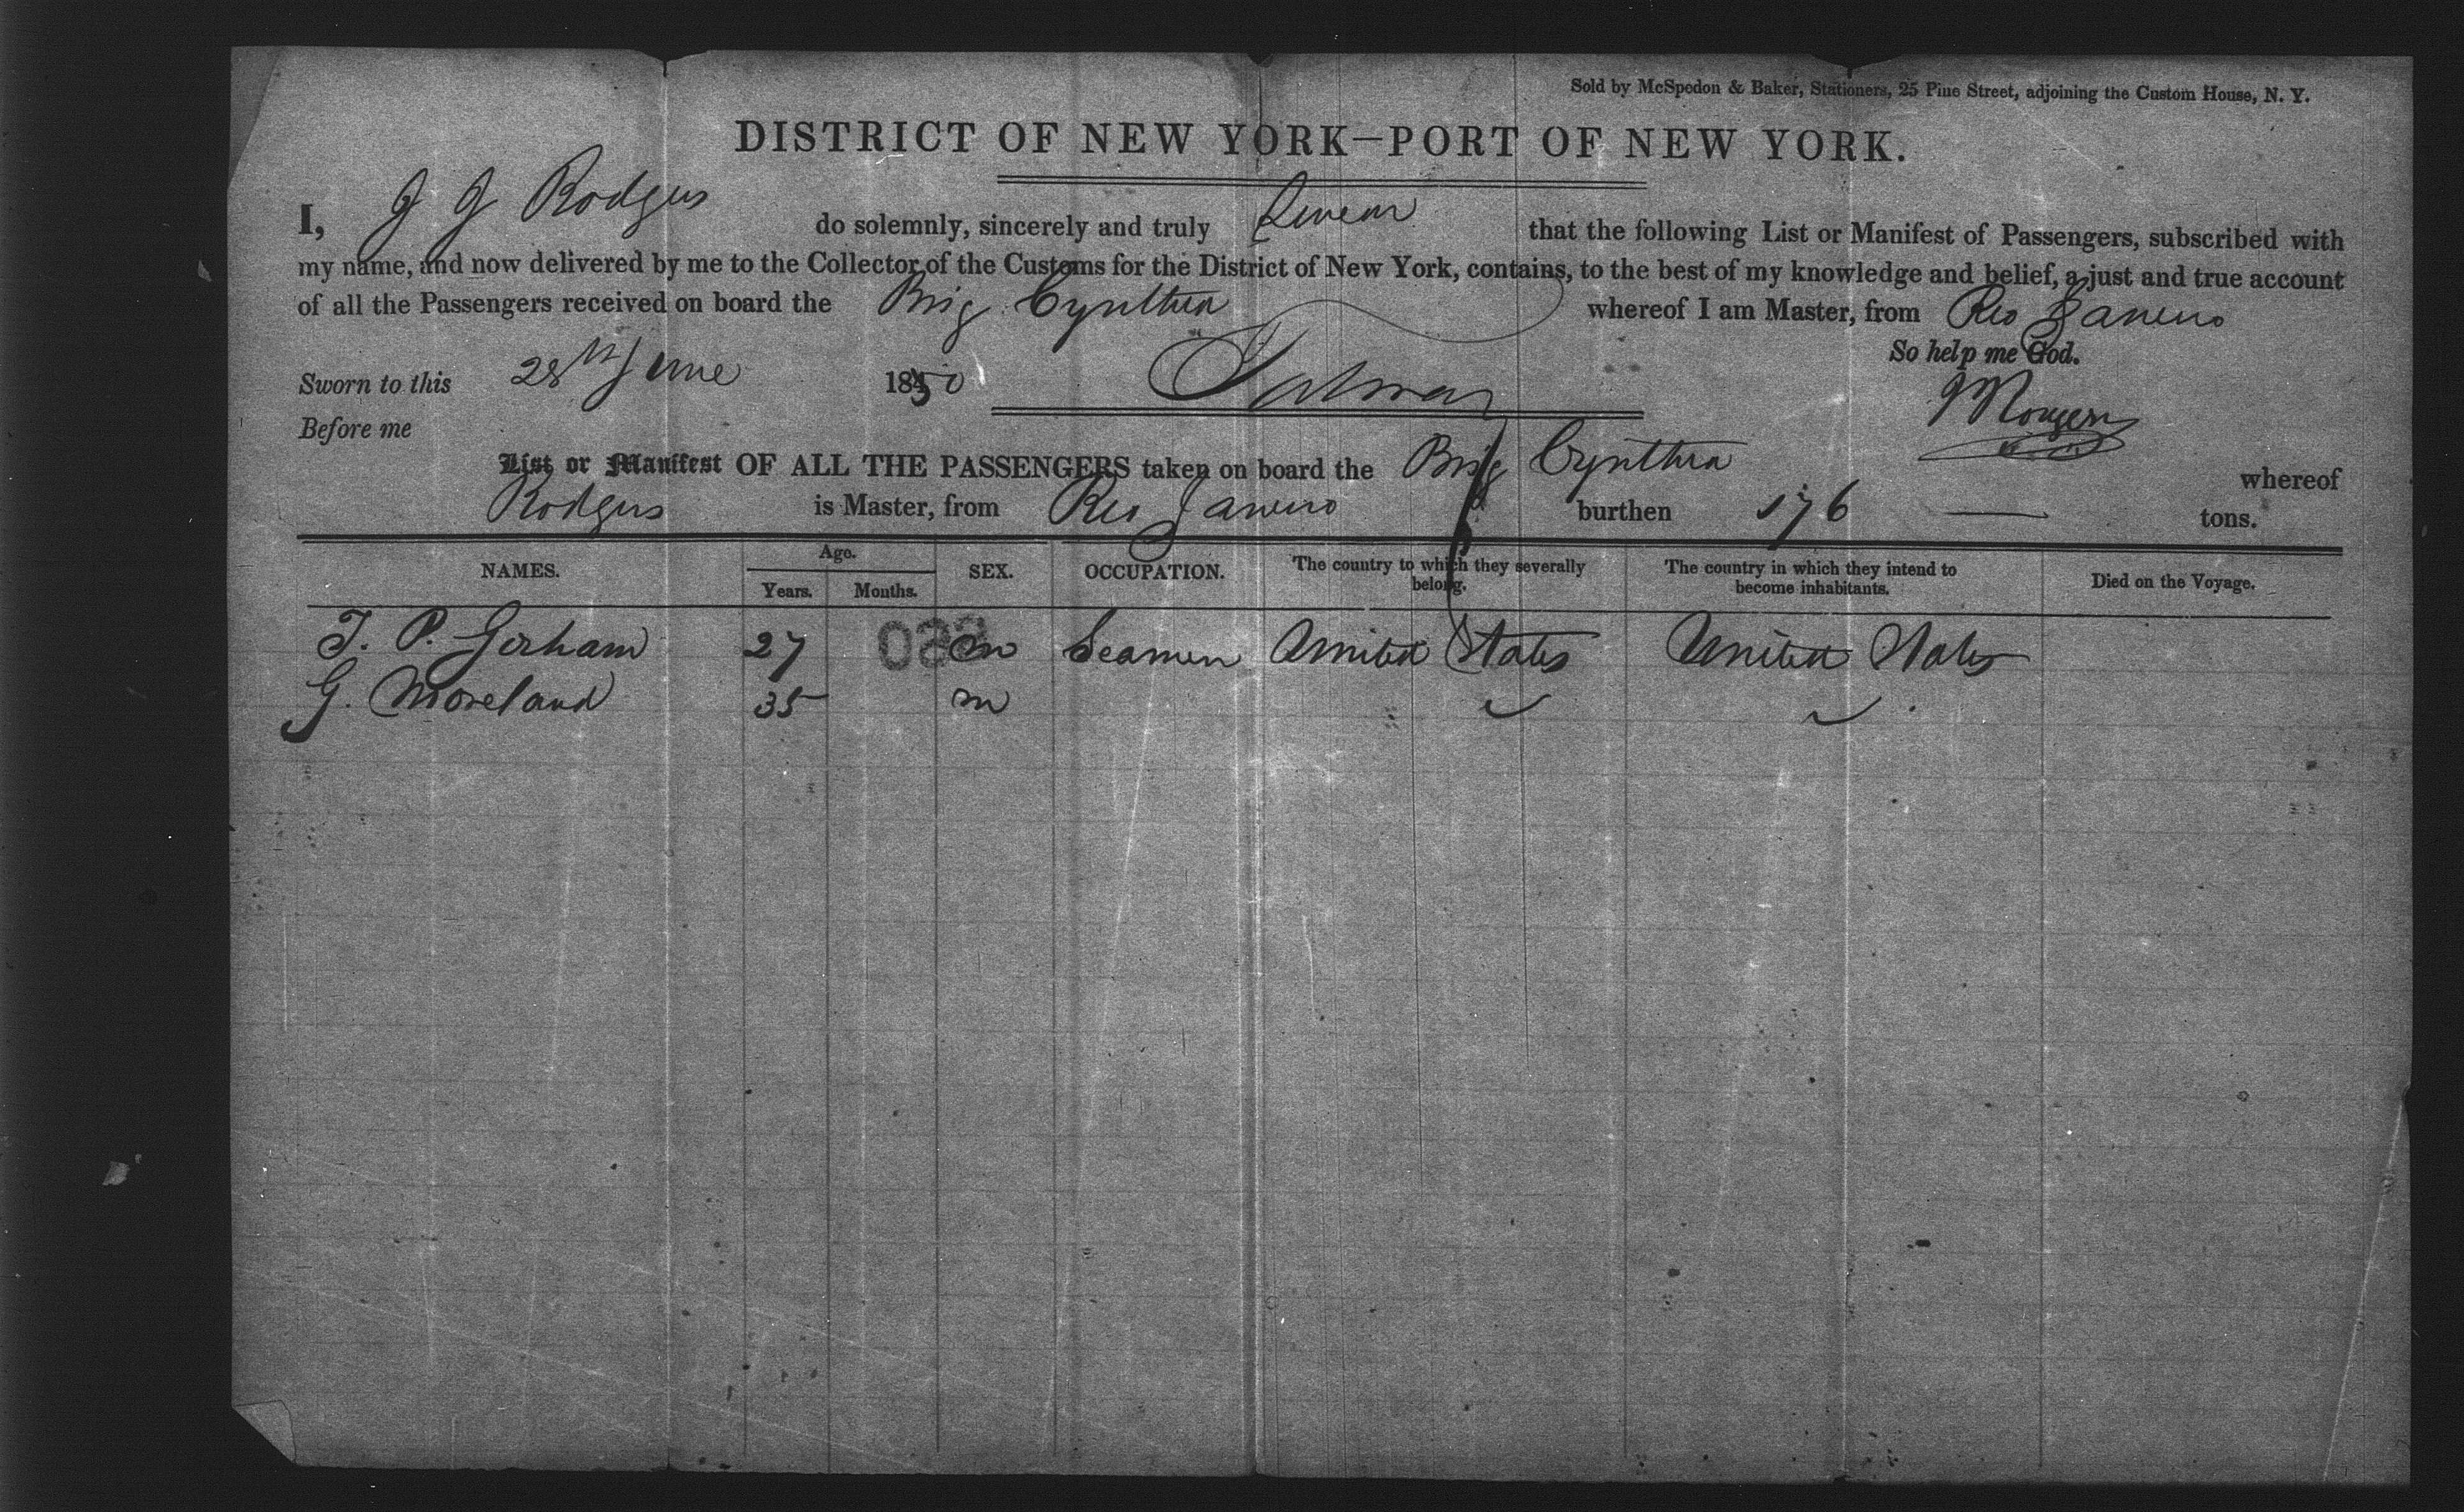 Sold by McSpedon & Baker, Stationers, 25 Pine Street, adjoining the Custom House, N. Y.
DISTRICT OF NEW YORK—PORT OF NEW YORK.
I, J J Rodgers do solemnly, sincerely and truly Swear that the following List or Manifest of Passengers, subscribed with
my name, and now delivered by me to the Collector of the Customs for the District of New York, contains, to the best of my knowledge and belief, a just and true account
of all the Passengers received on board the Brig Cynthia whereof I am Master, from Rio Janeiro
So help me God.
Sworn to this 28th June 1850
Before me
List or Manifest OF ALL THE PASSENGERS taken on board the Brig Cynthia whereof
Rodgers is Master, from Rio Janeiro burthen 176 — tons.
NAMES. Age. Years. Months. SEX. OCCUPATION. The country to which they severally belong. The country in which they intend to become inhabitants. Died on the Voyage.
T. P. Gorham 27 m Seamen United States United States
G. Moreland 35 m